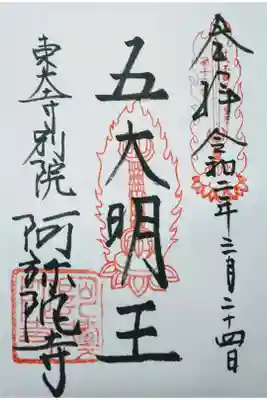 奉拝 令和二年三月二十四日
五大明王
東大寺別院 阿弥陀寺